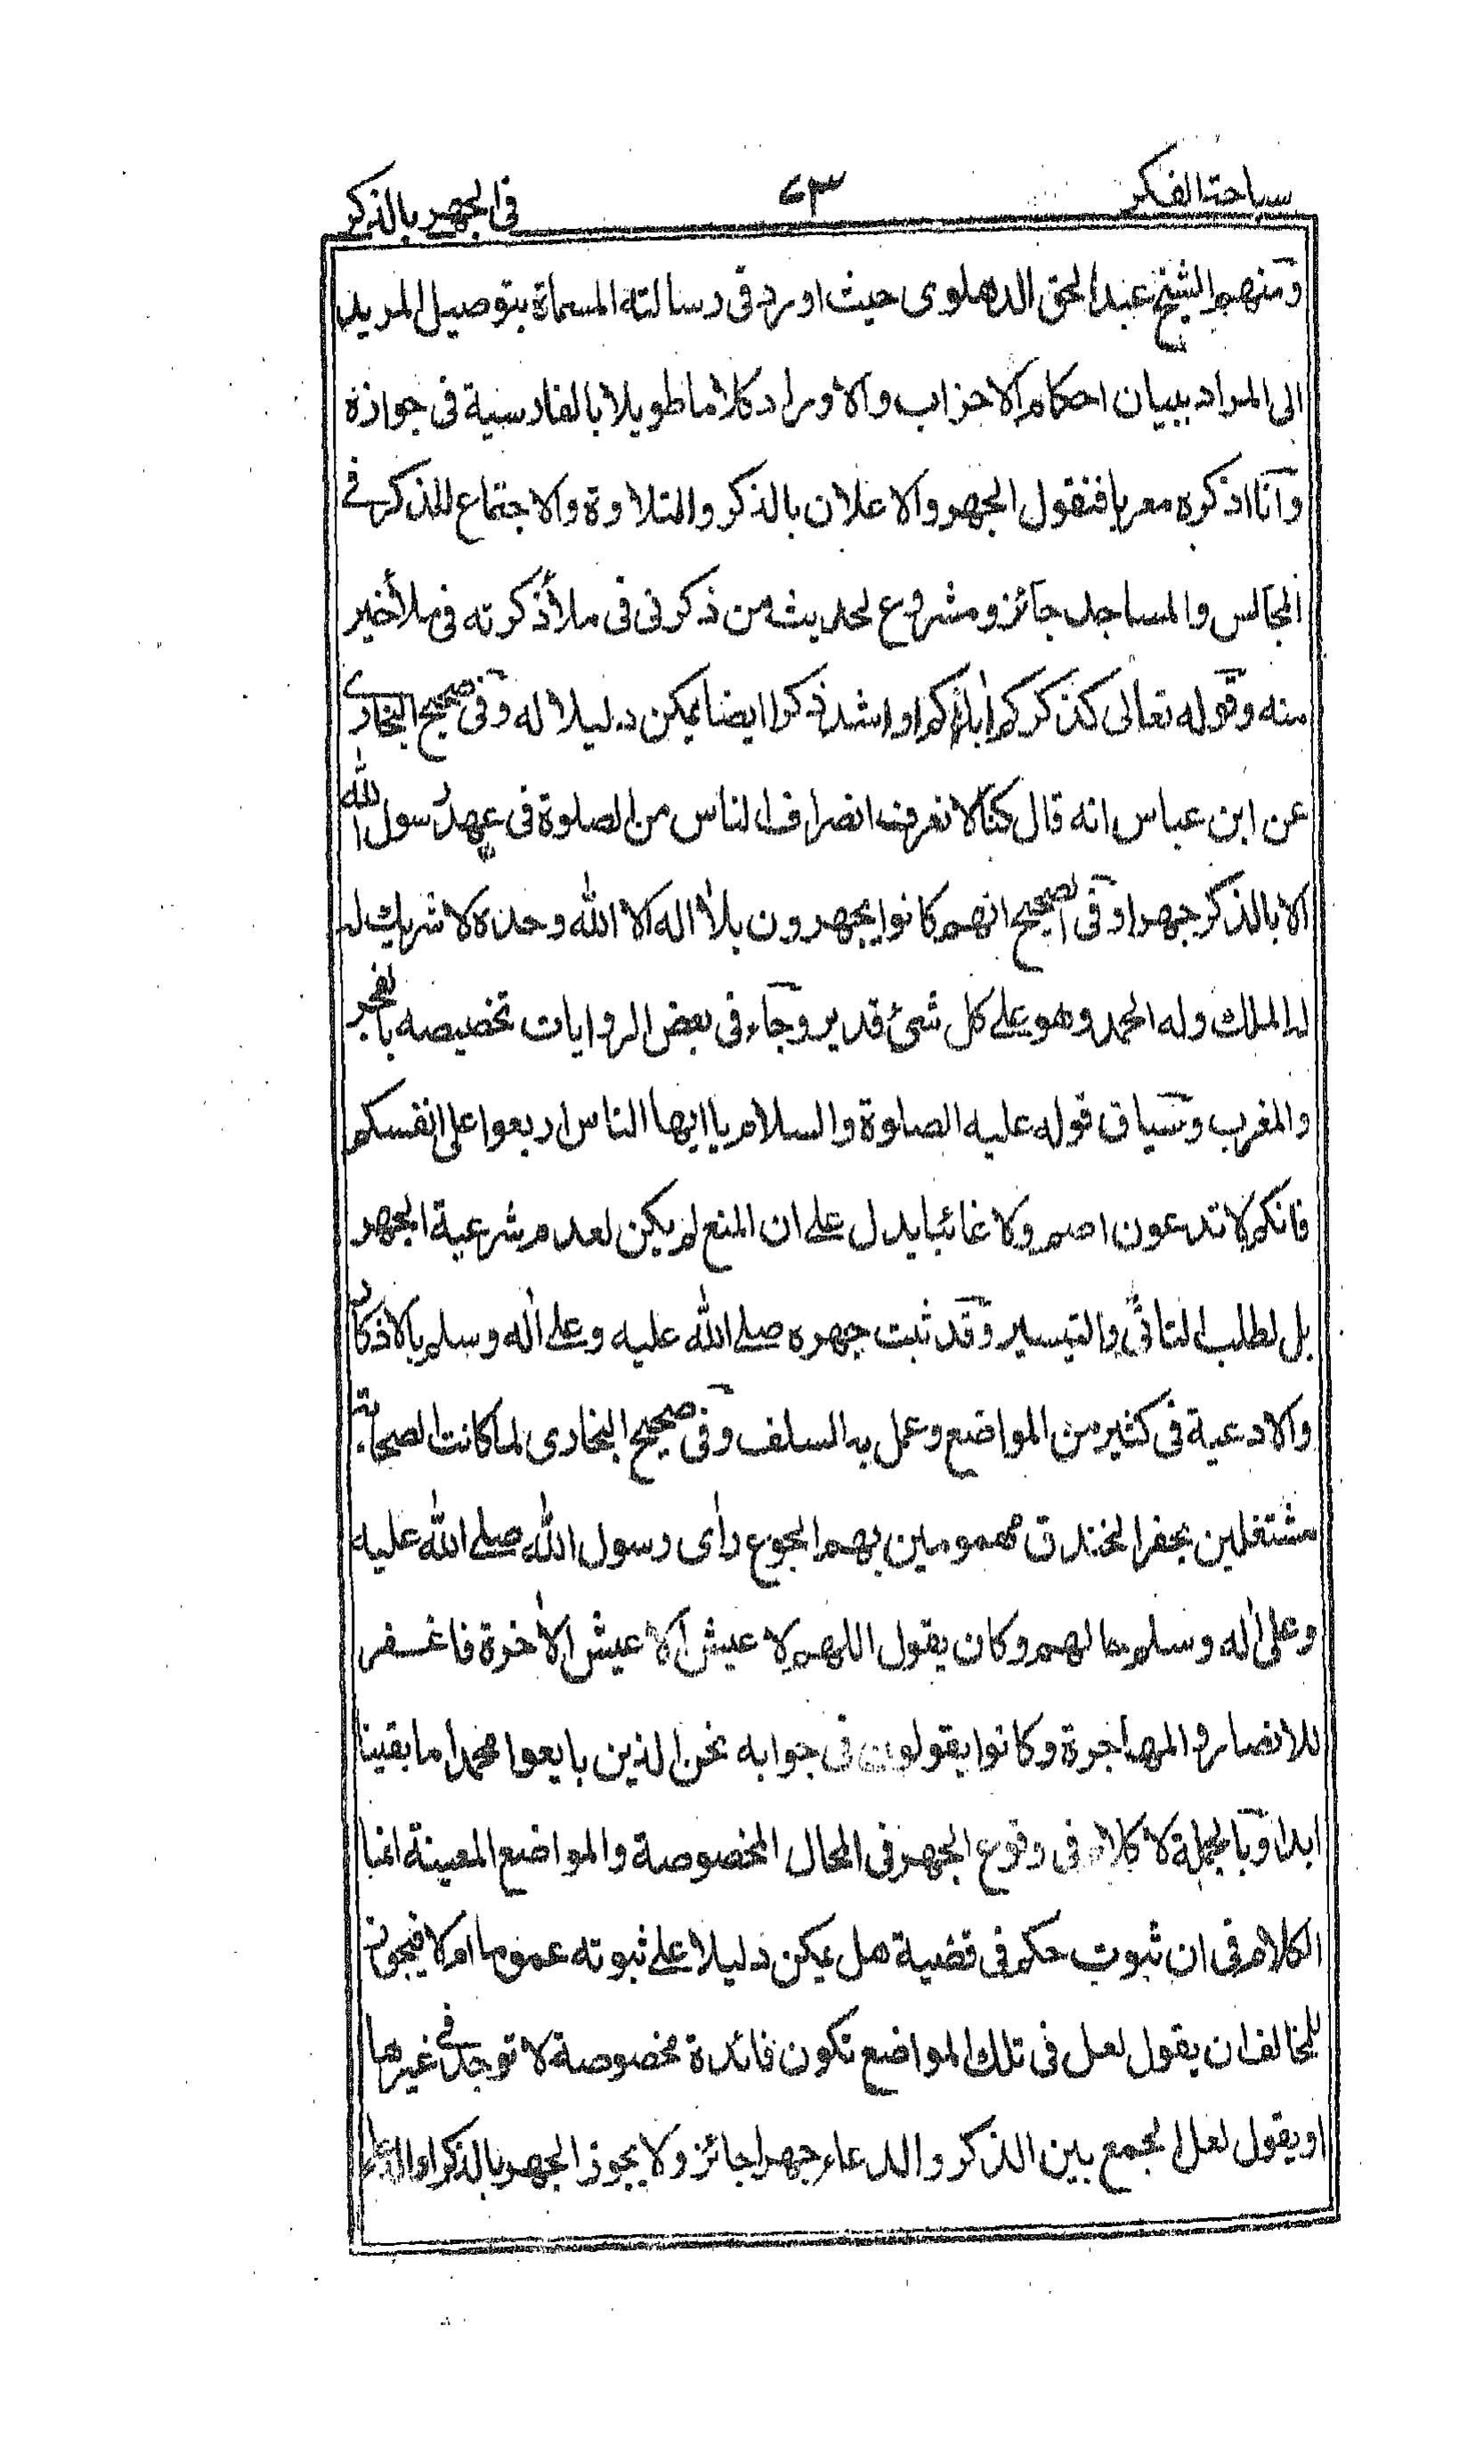 سباحة الفكر ٤٣ في الجهر بالذكر
ومنهم الشيخ عبد الحق الدهلوى حيث اورد فى رسالته المسماة بتوصيل المريد
الى المراد ببيان احكام الاحزاب والاوراد كلاما طويلا بالفارسية فى جوازه
وانا اذكره معربا فنقول الجهر والاعلان بالذكر والتلاوة والاجتماع للذكر فے
المجالس والمساجد جائز ومشروع لحديث من ذكرنى فى ملأ ذكرته فى ملأ خير
منه وقوله تعالى كذكركم اباءكم او اشد ذكرا ايضا يمكن دليلا له وفى صحيح البخارى
عن ابن عباس انه قال كنا لا نعرف انصراف الناس من الصلوة فى عهد رسول الله
الا بالذكر جهرا وفى الصحيح انهم كانوا يجهرون بلا اله الا الله وحده لا شريك له
له الملك وله الحمد وهو على كل شئ قدير وجاء فى بعض الروايات تخصيصه بالفجر
والمغرب وسياق قوله عليه الصلوة والسلام يا ايها الناس اربعوا على انفسكم
فانكم لا تدعون اصم ولا غائبا يدل على ان المنع لم يكن لعدم شرعية الجهر
بل لطلب التأنى والتيسير وقد ثبت جهره صلى الله عليه وعلى اٰله وسلم بالاذكار
والادعية فى كثير من المواضع وعمل به السلف وفى صحيح البخارى لما كانت الصحابة
مشتغلين بحفر الخندق مهمومين بهم الجوع رأى رسول الله صلى الله عليه
وعلى اٰله وسلم مالهم وكان يقول اللهم لا عيش الا عيش الاٰخرة فاغفر
للانصار والمهاجرة وكانوا يقولون فى جوابه نحن الذين بايعوا محمدا ما بقينا
ابدا وبالجملة لا كلام فى وقوع الجهر فى المحال المخصوصة والمواضع المعينة انما
الكلام فى ان ثبوت حكم فى قضية هل يمكن دليلا على ثبوته عموما ام لا فيجوز
للمخالف ان يقول لعل فى تلك المواضع تكون فائدة مخصوصة لا توجد فى غيرها
او يقول لعل الجمع بين الذكر والدعاء جهرا جائز ولا يجوز الجهر بالذكر او الدعاء